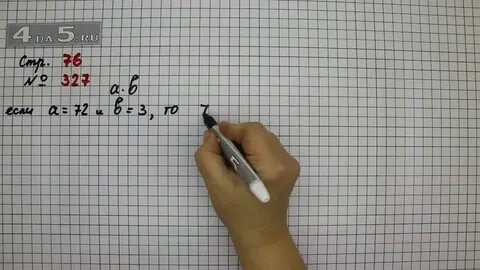 4DA5.RU
Стр. 76
№ 327
a·b
если a=72 и b=3, то 7